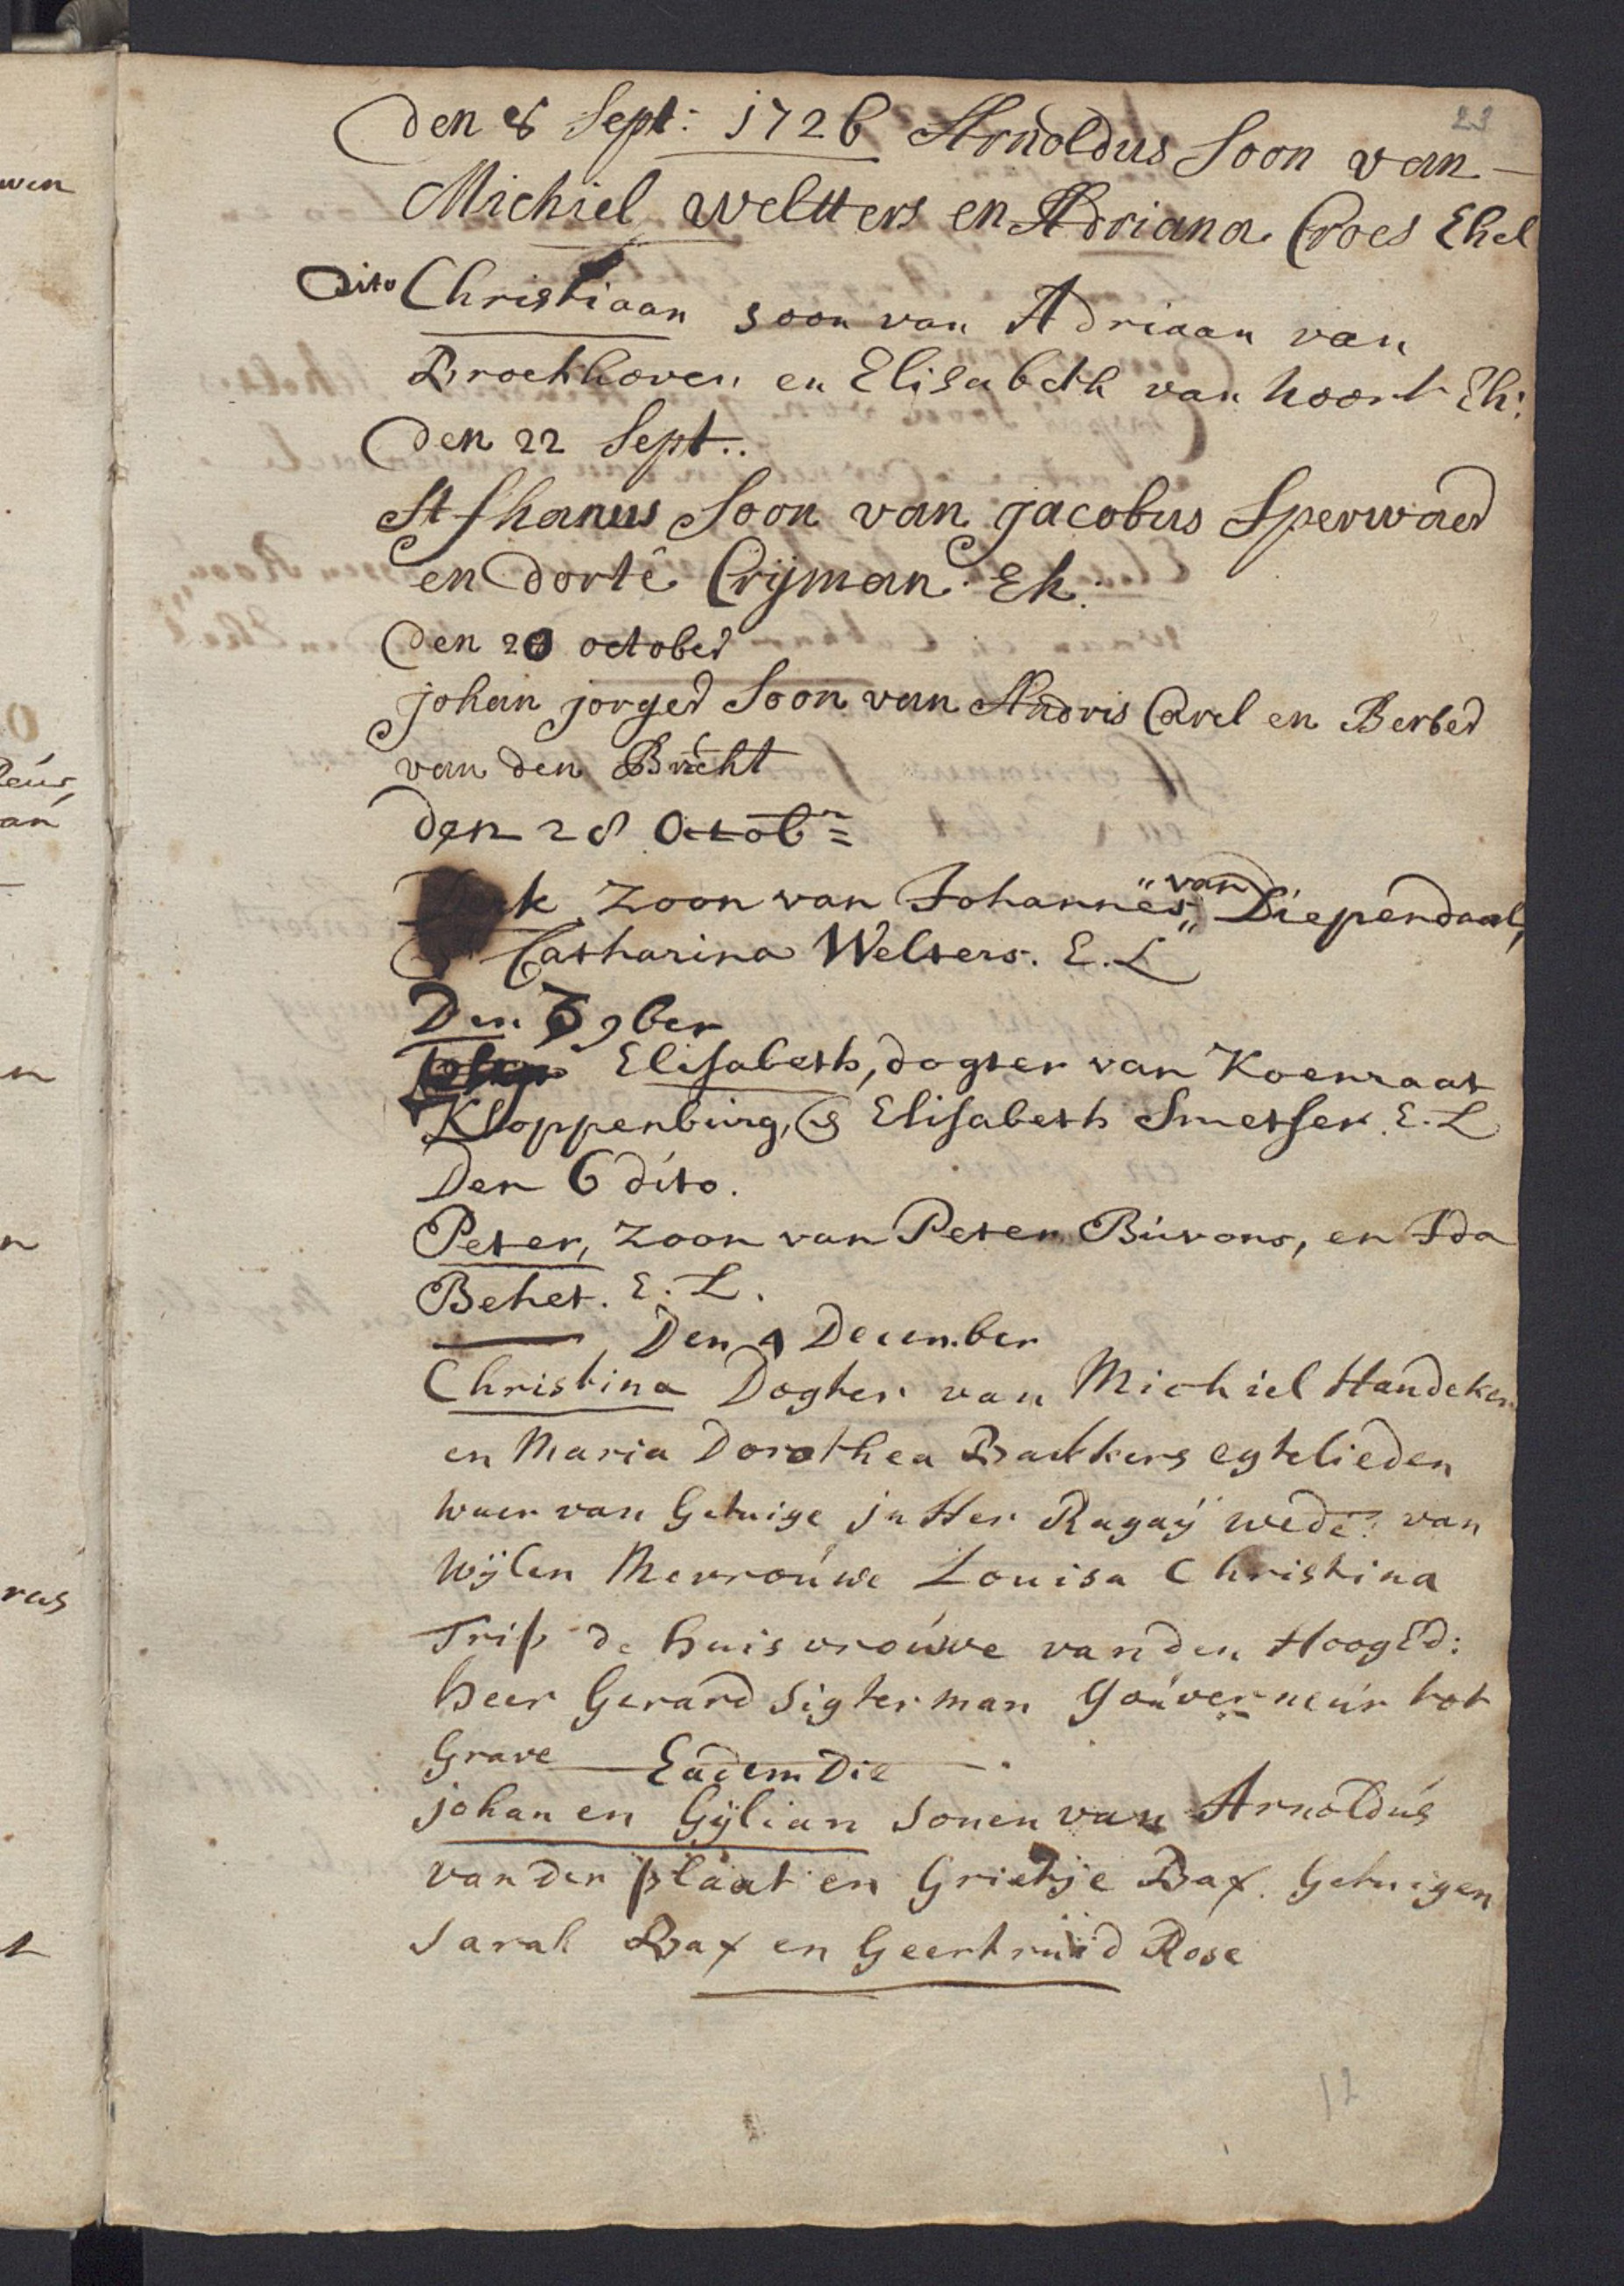 23
Den 8 Sept: 1726 Arnoldus Soon van
Michiel weltters en Adriana Croes Ehel
Dito Christiaan soon van Adriaan van
Broekhoven en Elisabeth van hoort Eh:
Den 22 Sept..
Stfhanus Soon van jacobus Sperwaer
en dorte Crijman Eh:
Den 20 october
johan jorger Soon van Andris Carel en Berber
van den Bucht
den 28 Octobr
zoon van Johannes van Diependaal,
Catharina Welters. E. L
Den 3 9ber
Elisabeth, dogter van Koenraat
Kloppenburg, & Elisabeth Smetser. E. L
Den 6 dito.
Peter, zoon van Peter Buvons, en Ida
Behet. E. L.
Den 4 December
Christina Dogter van Michiel Handeken
en Maria Dorothea Backkers egtelieden
waer van Getuige juffer Ragaÿ wede: van
Wijlen Mevrouwe Louisa Christina
Trip de huisvrouwe van den HoogEd:
heer Gerard Sigterman Gouverneur tot
Grave Eadem Die
johan en Gijlian Sonen van Arnoldus
van der plaat en Grietje Bax. Getuigen
Sarah Bax en Geertruid Rose
12